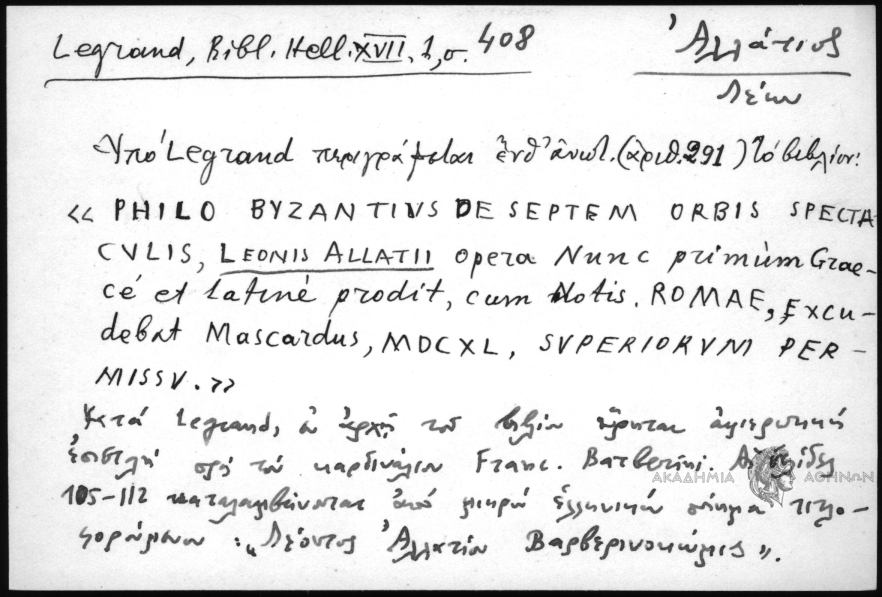 Legrand, Bibl. Hell. XVII, 1, σ. 408
Ἀλλάτιος
Λέων
Ὑπὸ Legrand περιγράφεται ἔνθ' ἀνωτ. (ἀριθ. 291) τὸ βιβλίον:
« PHILO BYZANTIVS DE SEPTEM ORBIS SPECTA
CVLIS, LEONIS ALLATII opera Nunc primùm Grae-
cé et latiné prodit, cum Notis. ROMAE, Excu-
debat Mascardus, MDCXL, SVPERIORVM PER-
MISSV. »
Κατά Legrand, ἐν ἀρχῇ τοῦ βιβλίου εὕρηται ἀφιερωτική
ἐπιστολή πρός τόν καρδινάλιον Franc. Barberini. Αἱ σελίδες
105-112 καταλαμβάνονται ἀπό μικρόν ἑλληνικόν ποίημα τιτλο-
φορούμενον : „Λέοντος Ἀλλατίου Βαρβερινοκώμις".
ΑΚΑΔΗΜΙΑ ΑΘΗΝΩΝ